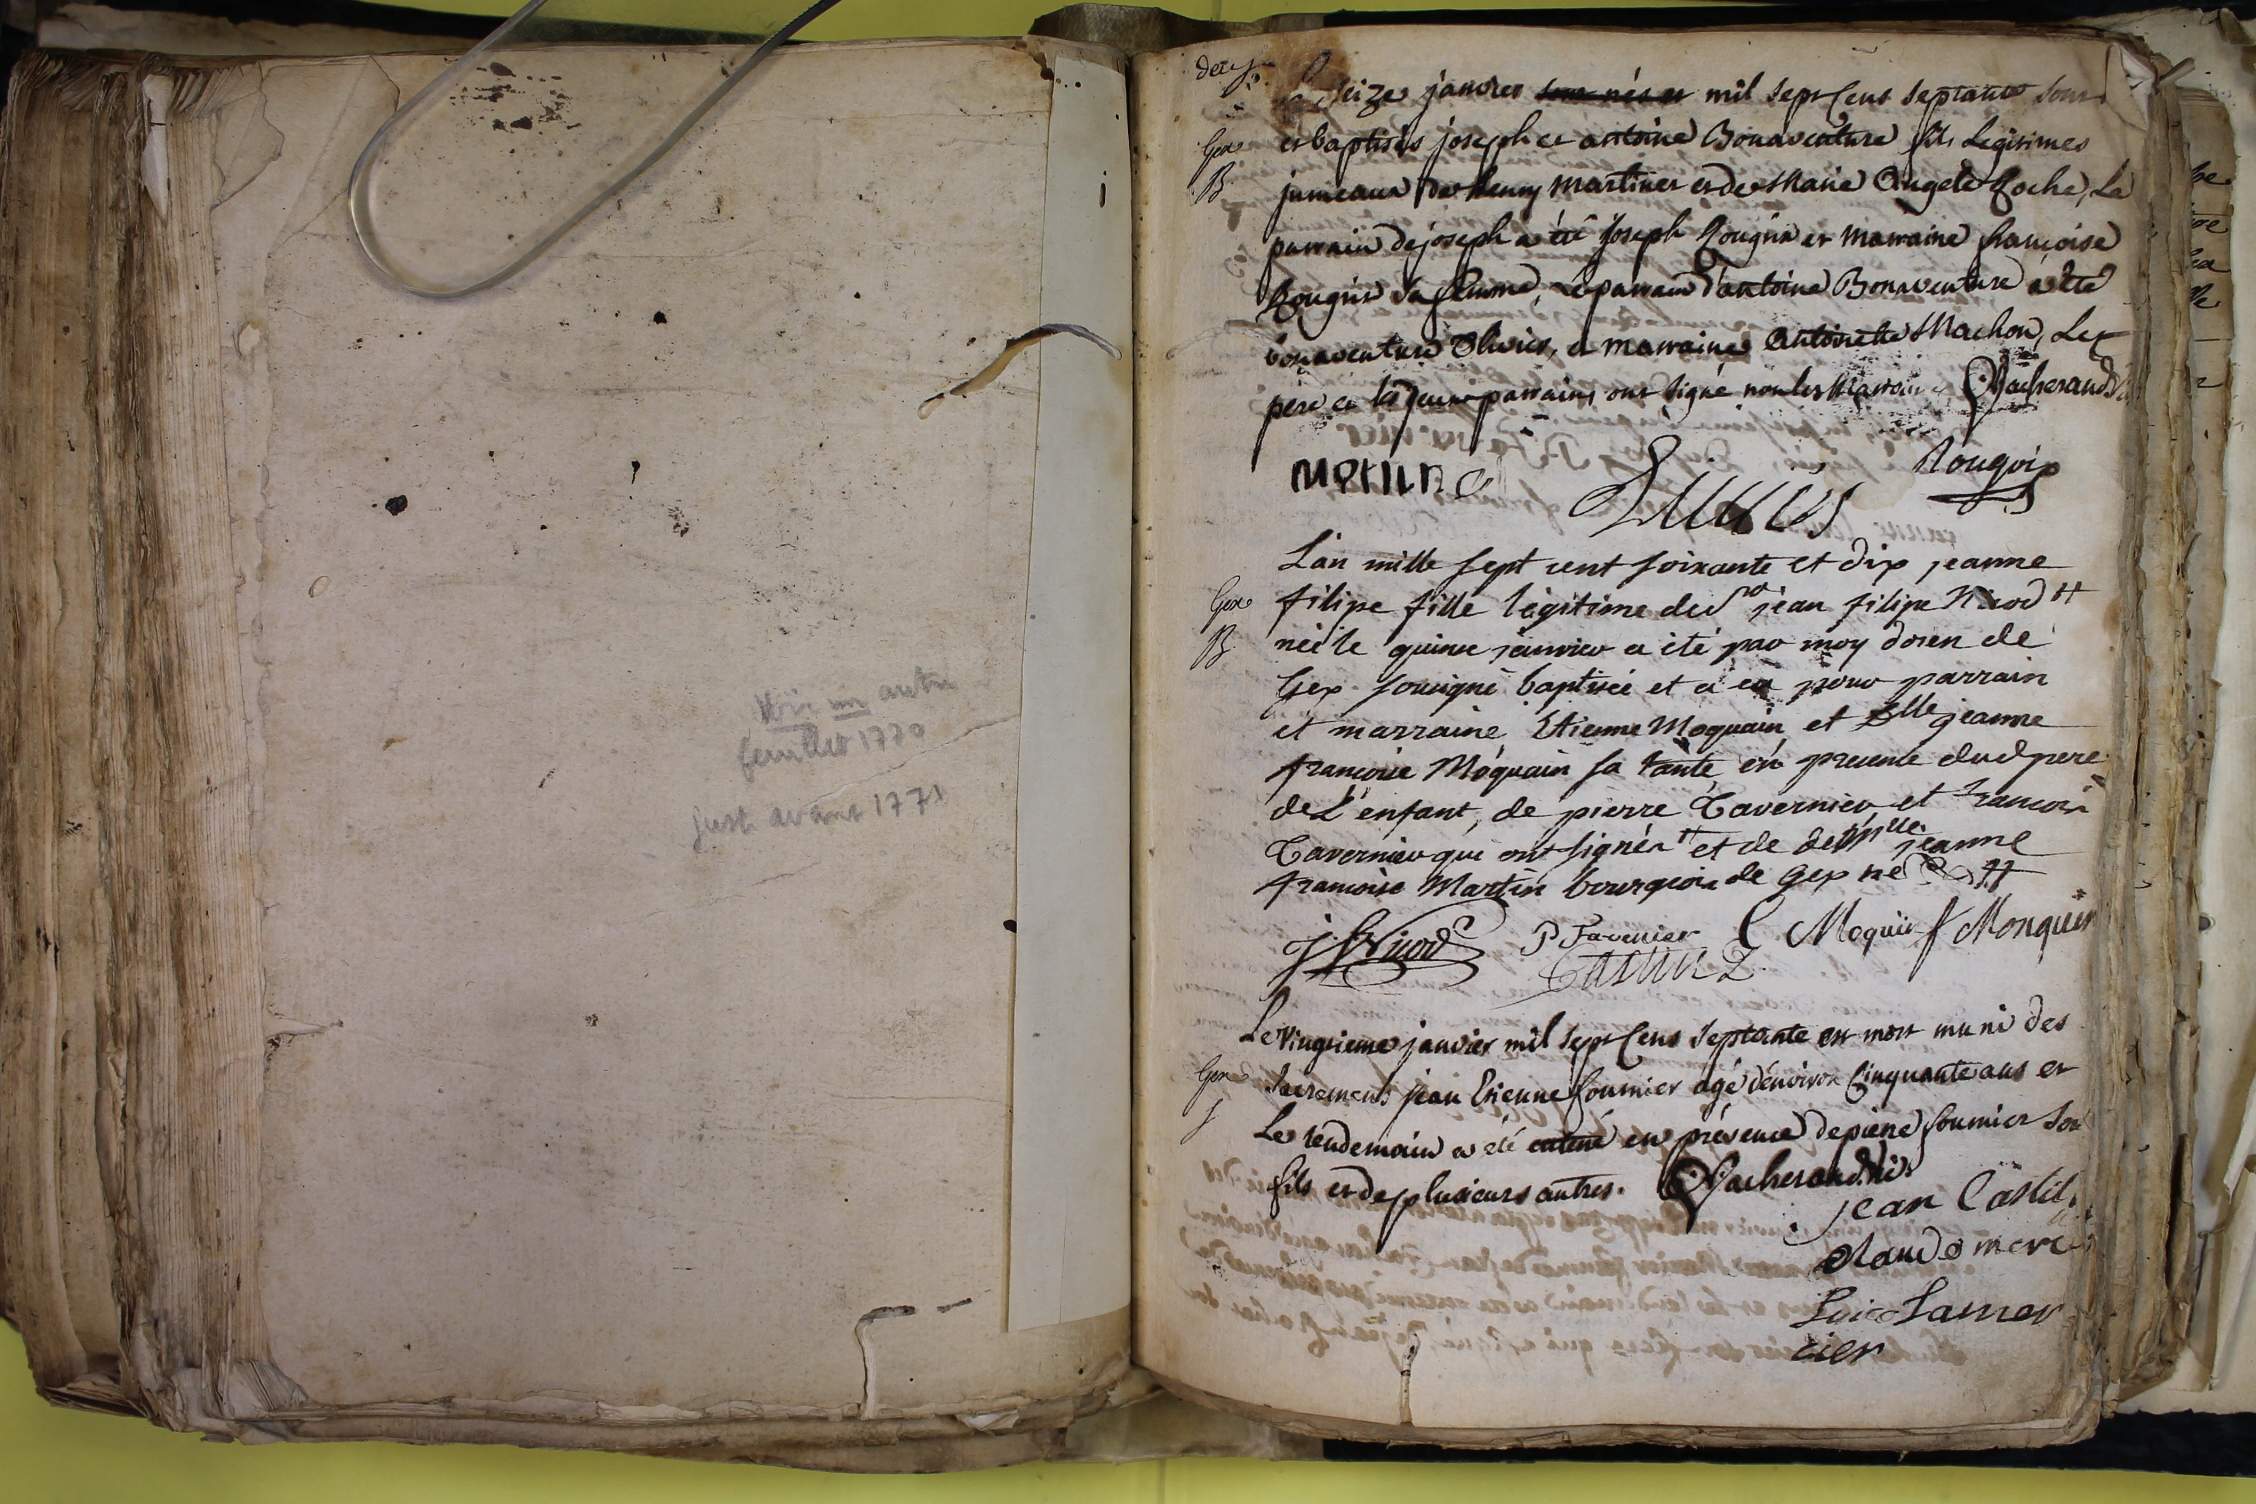 Voir un autre
feuillet 1770
juste avant 1771
Gex
B
Le seize janvier sont nés et mil sept cent septante sont
et baptisés joseph et antoine Bonaventure fils Legitimes
jumeaux de henry martinet et de Marie Angele Roche, Le
parrain de joseph a été joseph Rougrix et marraine françoise
Rougrix sa femme, le parrain d'antoine Bonaventure a été
bonaventure Olivier, et marraine Antoinette Machon, Les
père et les parrains ont signé non les Marraines Vacherand
Rougrix
L'an mille sept cent soixante et dix jeanne
Gex
filipe fille légitime du jean filipe Nicod #
B
née le quinze janvier a été par moy doien de
Gex soussigné baptisée et a eu pour parrain
et marraine Etienne Moquain et Dlle jeanne
françoise Moquain sa tante en presence dud pere
de L'enfant, de pierre Tavernier et françois
Tavernier qui ont signés # et de jeanne
françoise Martin bourgeois de Gex #
Nicod
P Tavenier
Moquin
f Monquin
Le vingtieme janvier mil sept cens septante est mort muni des
Gex
sacremens jean Etienne fournier agé d'environ Cinquante ans et
Le lendemain a été enterré en présence de pierre fournier son
fils et de plusieurs autres. Vacherand vic.
jean Castil
claude merc
Lamer
cier